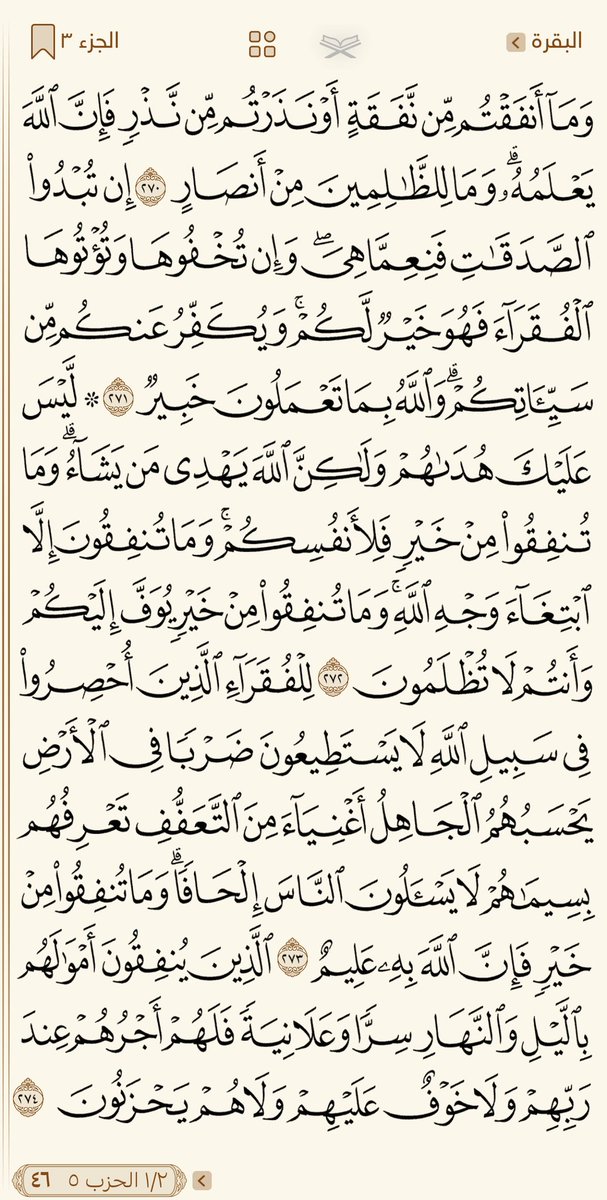 البقرة
الجزء ٣
وَمَآ أَنفَقْتُم مِّن نَّفَقَةٍ أَوْ نَذَرْتُم مِّن نَّذْرٍ فَإِنَّ ٱللَّهَ
يَعْلَمُهُۥۗ وَمَا لِلظَّٰلِمِينَ مِنْ أَنصَارٍ ٢٧٠ إِن تُبْدُوا۟
ٱلصَّدَقَٰتِ فَنِعِمَّا هِىَۖ وَإِن تُخْفُوهَا وَتُؤْتُوهَا
ٱلْفُقَرَآءَ فَهُوَ خَيْرٌ لَّكُمْۚ وَيُكَفِّرُ عَنكُم مِّن
سَيِّـَٔاتِكُمْۗ وَٱللَّهُ بِمَا تَعْمَلُونَ خَبِيرٌ ٢٧١ ۞ لَّيْسَ
عَلَيْكَ هُدَىٰهُمْ وَلَٰكِنَّ ٱللَّهَ يَهْدِى مَن يَشَآءُۗ وَمَا
تُنفِقُوا۟ مِنْ خَيْرٍ فَلِأَنفُسِكُمْۚ وَمَا تُنفِقُونَ إِلَّا
ٱبْتِغَآءَ وَجْهِ ٱللَّهِۚ وَمَا تُنفِقُوا۟ مِنْ خَيْرٍ يُوَفَّ إِلَيْكُمْ
وَأَنتُمْ لَا تُظْلَمُونَ ٢٧٢ لِلْفُقَرَآءِ ٱلَّذِينَ أُحْصِرُوا۟
فِى سَبِيلِ ٱللَّهِ لَا يَسْتَطِيعُونَ ضَرْبًا فِى ٱلْأَرْضِ
يَحْسَبُهُمُ ٱلْجَاهِلُ أَغْنِيَآءَ مِنَ ٱلتَّعَفُّفِ تَعْرِفُهُم
بِسِيمَٰهُمْ لَا يَسْـَٔلُونَ ٱلنَّاسَ إِلْحَافًاۗ وَمَا تُنفِقُوا۟ مِنْ
خَيْرٍ فَإِنَّ ٱللَّهَ بِهِۦ عَلِيمٌ ٢٧٣ ٱلَّذِينَ يُنفِقُونَ أَمْوَٰلَهُم
بِٱلَّيْلِ وَٱلنَّهَارِ سِرًّا وَعَلَانِيَةً فَلَهُمْ أَجْرُهُمْ عِندَ
رَبِّهِمْ وَلَا خَوْفٌ عَلَيْهِمْ وَلَا هُمْ يَحْزَنُونَ ٢٧٤
١/٢ الحزب ٥ ٤٦